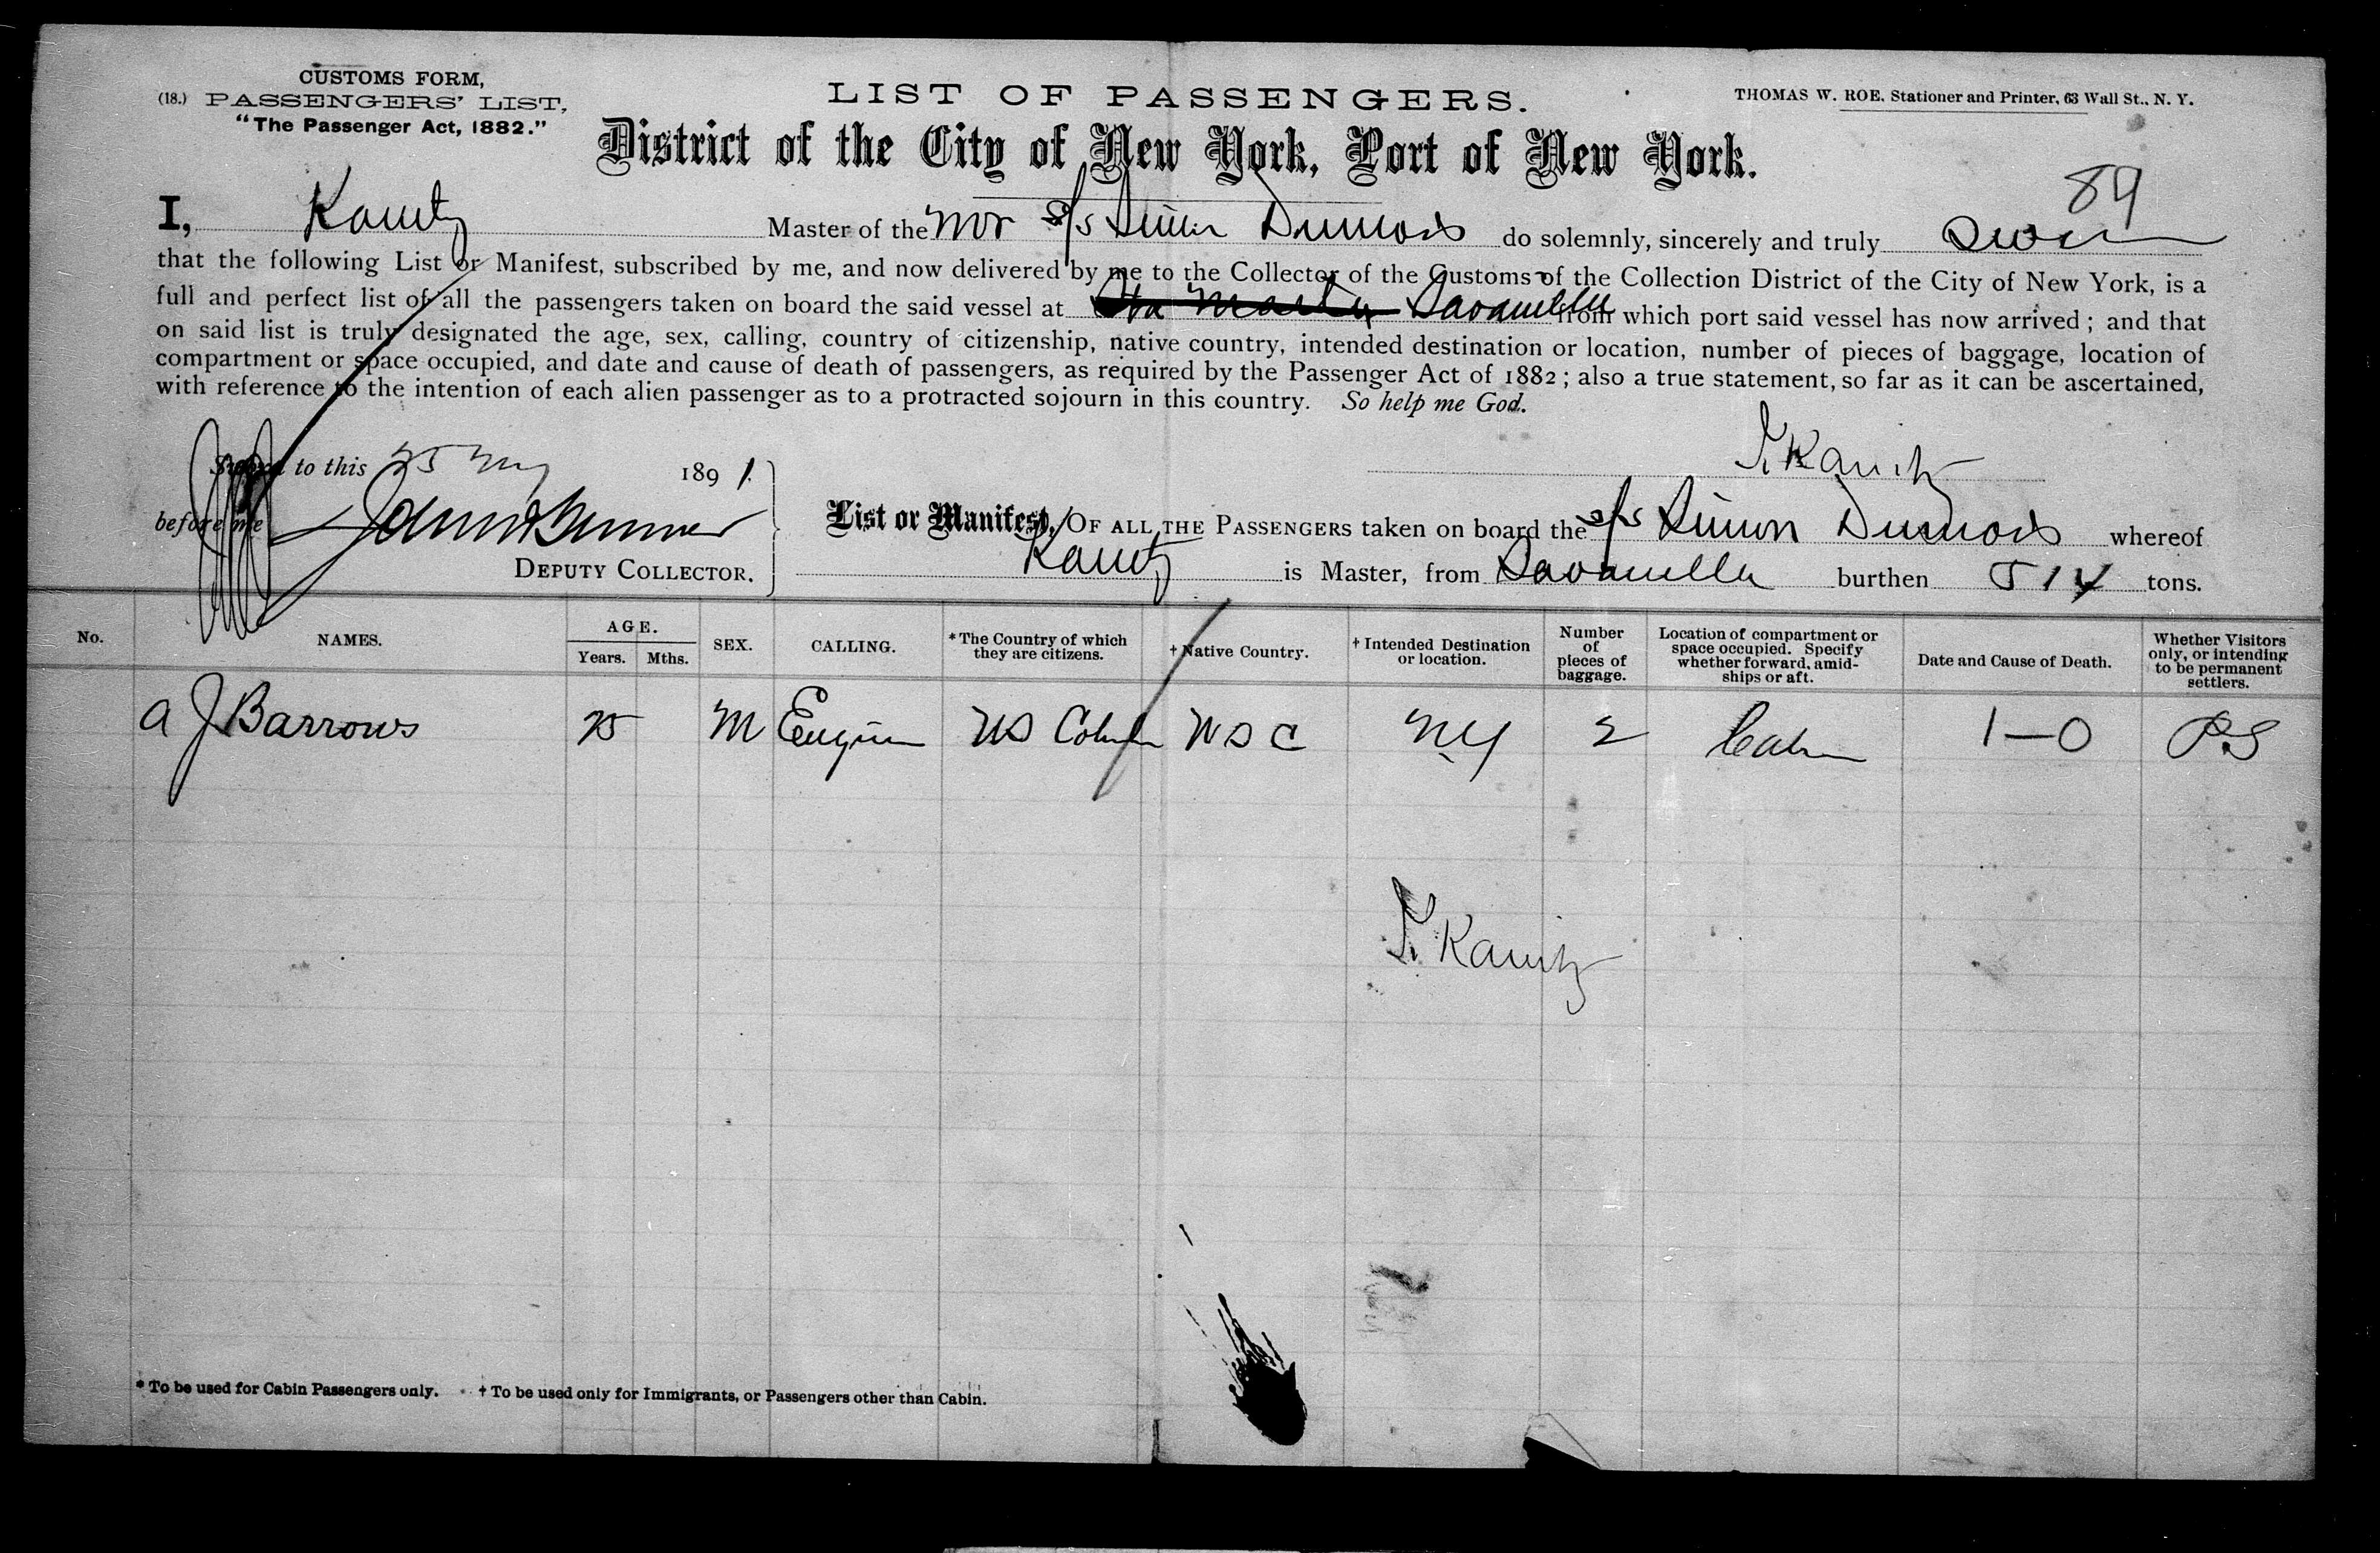 CUSTOMS FORM,
(18.) PASSENGERS' LIST,
"The Passenger Act, 1882."
LIST OF PASSENGERS.
THOMAS W. ROE. Stationer and Printer, 63 Wall St., N. Y.
District of the City of New York, Port of New York.
89
I, Kanitz Master of the Nor s/s Simon Dumois do solemnly, sincerely and truly Swear
that the following List or Manifest, subscribed by me, and now delivered by me to the Collector of the Customs of the Collection District of the City of New York, is a
full and perfect list of all the passengers taken on board the said vessel at Sta Marta Savanilla from which port said vessel has now arrived; and that
on said list is truly designated the age, sex, calling, country of citizenship, native country, intended destination or location, number of pieces of baggage, location of
compartment or space occupied, and date and cause of death of passengers, as required by the Passenger Act of 1882; also a true statement, so far as it can be ascertained,
with reference to the intention of each alien passenger as to a protracted sojourn in this country. So help me God.
T. Kanitz
Sworn to this 25 May 1891.
before me
DEPUTY COLLECTOR.
List or Manifest, OF ALL THE PASSENGERS taken on board the s/s Simon Dumois whereof
Kanitz is Master, from Savanilla burthen 514 tons.
No. NAMES. AGE. Years. Mths. SEX. CALLING. *The Country of which they are citizens. † Native Country. † Intended Destination or location. Number of pieces of baggage. Location of compartment or space occupied. Specify whether forward, amidships or aft. Date and Cause of Death. Whether Visitors only, or intending to be permanent settlers.
A J Barrows 25 M Engineer US Columbia U S C N.Y 2 Cabin 1—0 P.S
T. Kanitz
* To be used for Cabin Passengers only. † To be used only for Immigrants, or Passengers other than Cabin.